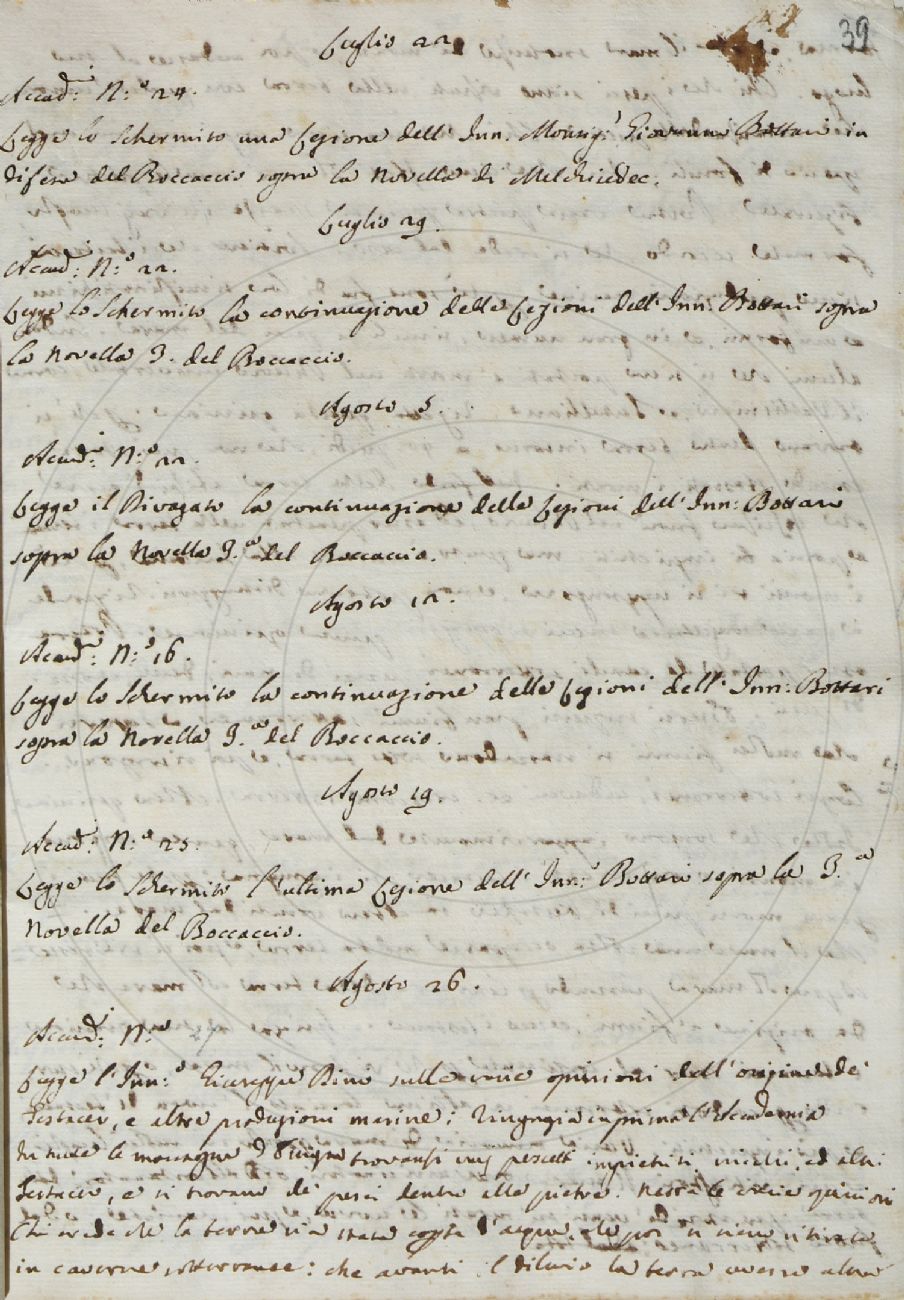 39
Luglio 22
Accad:i N:o 24.
Legge lo Schermito una Lezione dell' Inn. Monsig.r Giovanni Bottari in
difesa del Boccaccio sopra la Novella di Melchisedec.
Luglio 29.
Accad:i N:o 22.
Legge lo Schermito la continuazione delle Lezioni dell' Inn: Bottari sopra
la Novella 3. del Boccaccio.
Agosto 5.
Accad:i N:o 22.
Legge il Rivagato la continuazione delle Lezioni dell' Inn: Bottari
sopra la Novella 3.a del Boccaccio.
Agosto 12.
Accad:i N:o 16.
Legge lo Schermito la continuazione delle Lezioni dell' Inn: Bottari
sopra la Novella 3.a del Boccaccio.
Agosto 19.
Accad:i N:o 25.
Legge lo Schermito l'ultima Lezione dell' Inn:o Bottari sopra la 3.a
Novella del Boccaccio.
Agosto 26.
Accad:i N:o
Legge l'Inn:o Giuseppe Bini sulle varie opinioni dell'origine de
Testacei, e altre produzioni marine; Ringrazia in prima l'Accademia
In tutte le montagne trovansi pescetti impietriti, nicchi, ed altri
Testacei, e si trovano de pesci dentro alle pietre. Narra le varie opinioni
Chi crede che la terra sia stata coperta d'acqua, che poi si siano ritirate
in caverne sotterranee: che avanti il diluvio la terra avesse altra